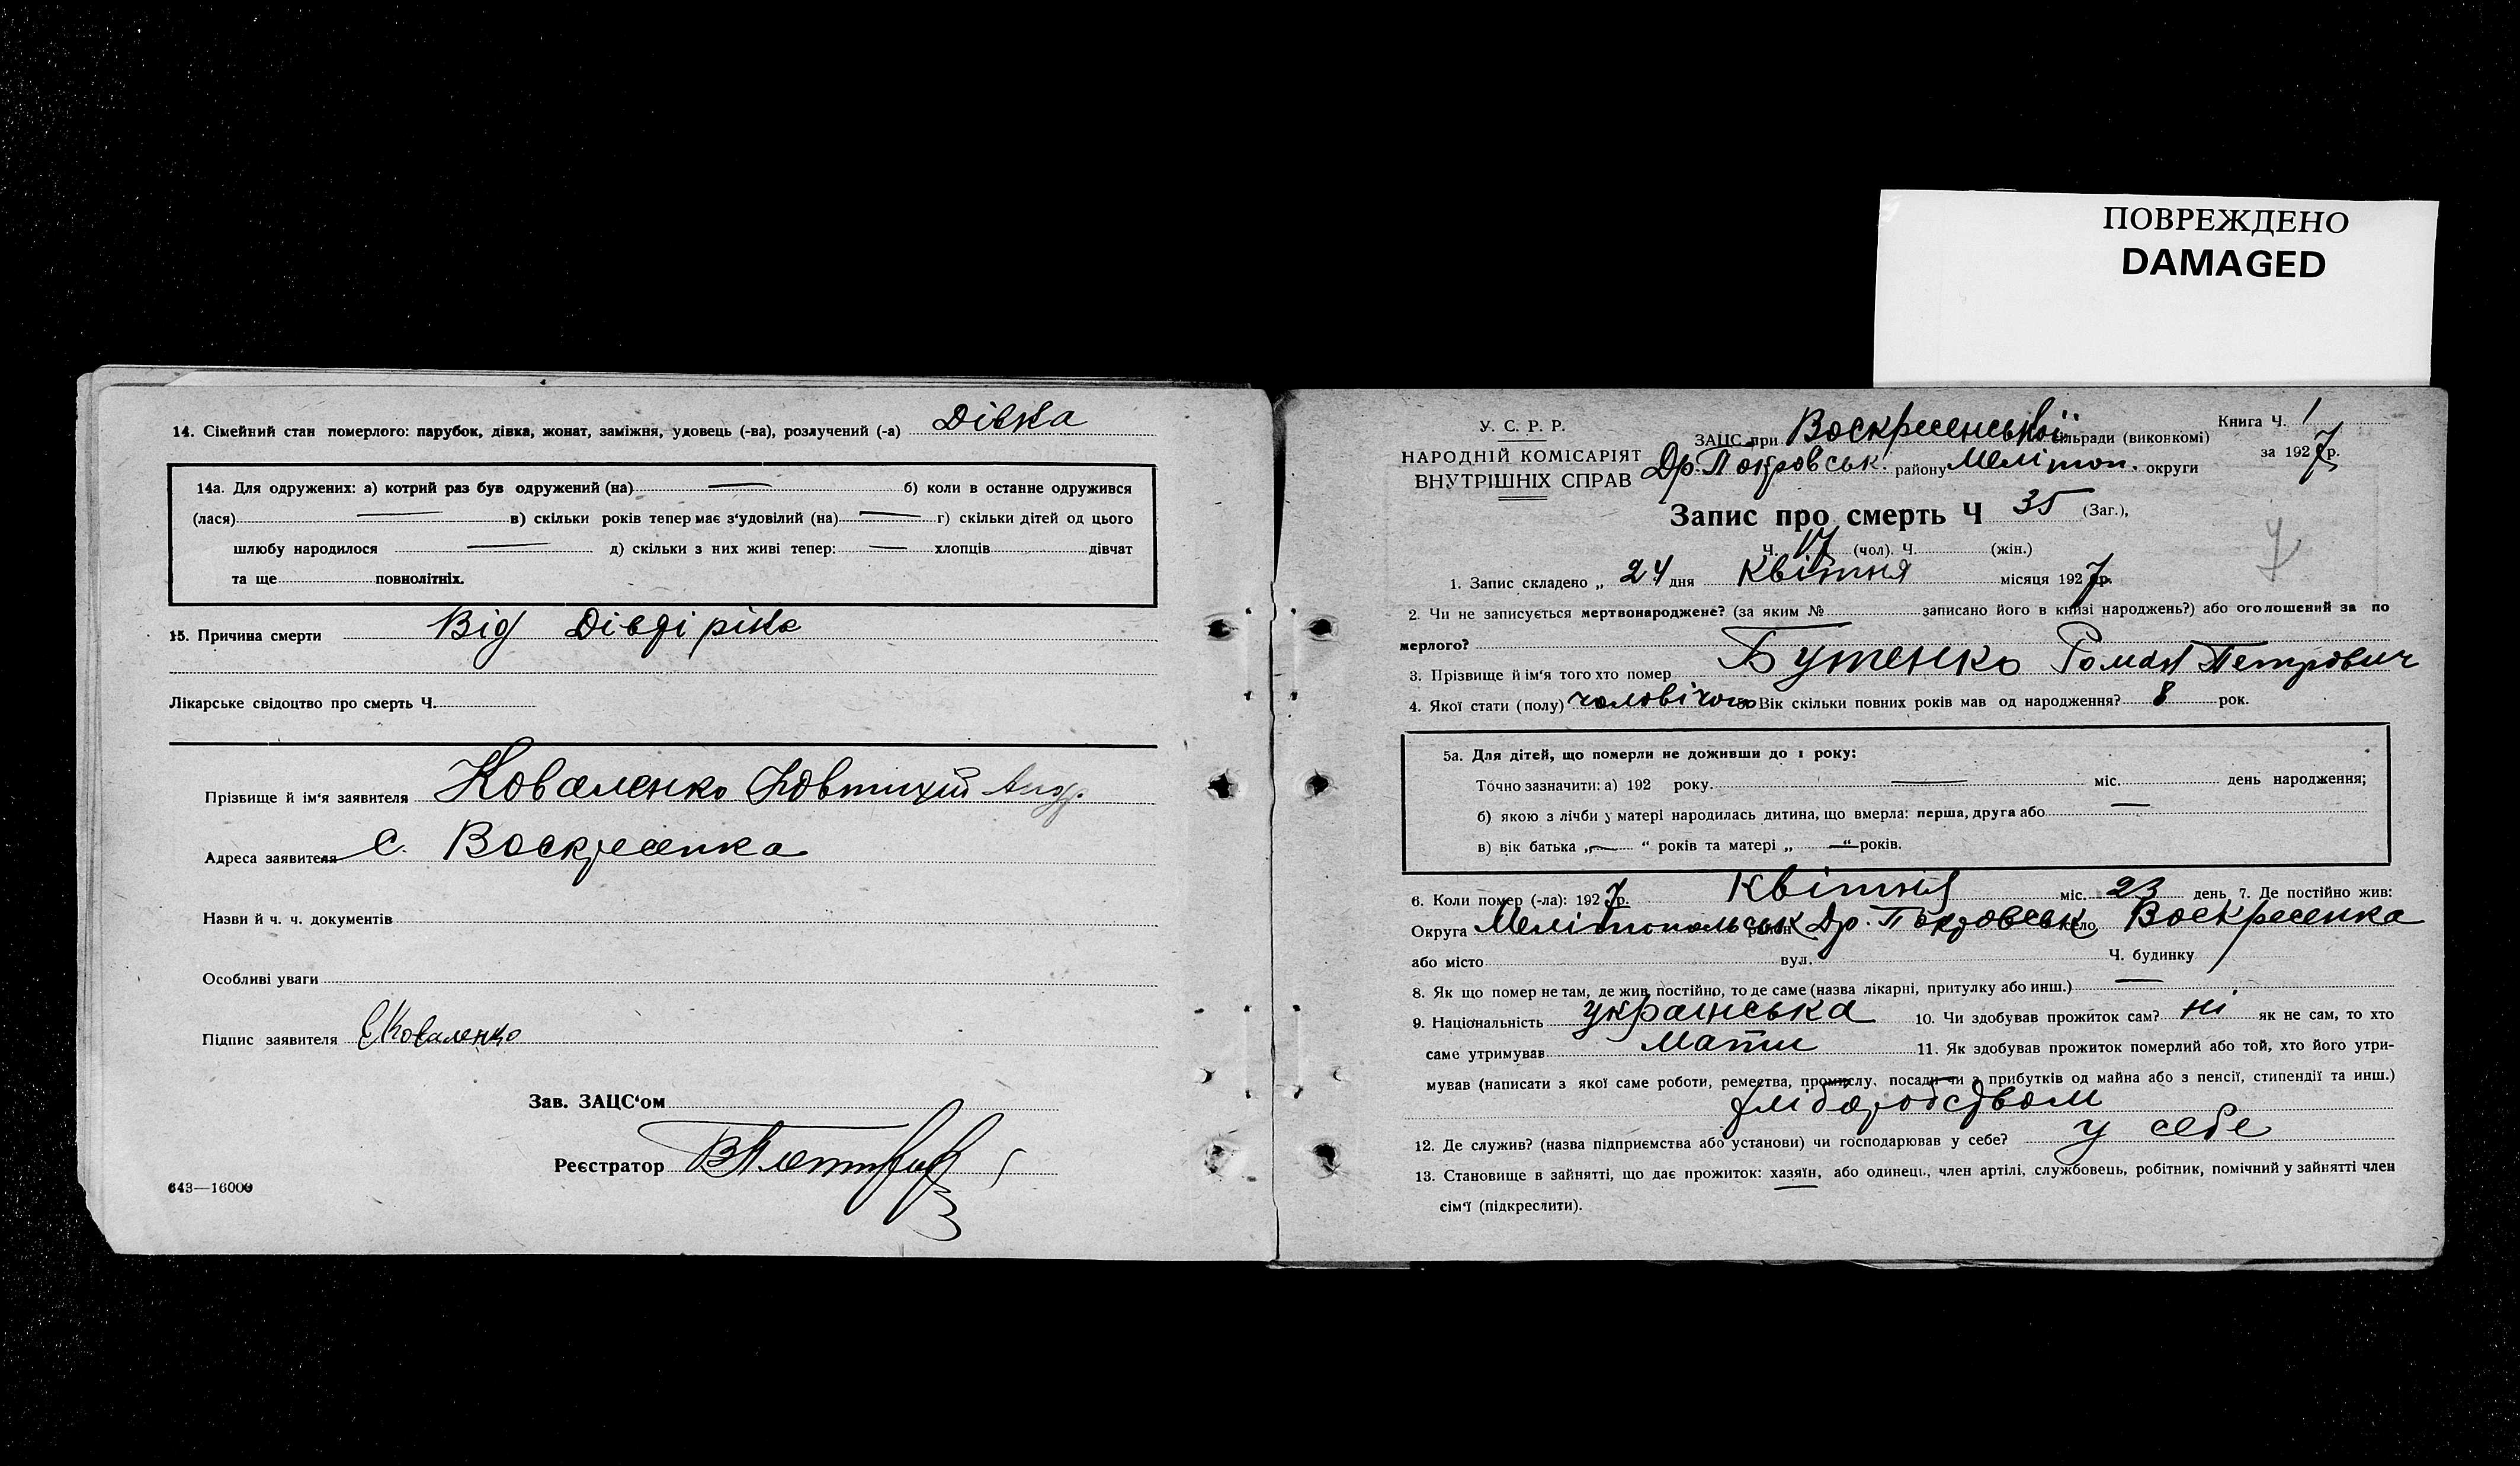 ПОВРЕЖДЕНО
DAMAGED
14. Сімейний стан померлого: парубок, дівка, жонат, заміжня, удовець (-ва), розлучений (-а) Дівка
14а. Для одружених: а) котрий раз був одружений (на) — б) коли в останне одружився
(лася) — в) скільки років тепер має з'удовілий (на) — г) скільки дітей од цього
шлюбу народилося — д) скільки з них живі тепер: — хлопців дівчат
та ще повнолітніх.
15. Причина смерти Від Дівдіріка
Лікарське свідоцтво про смерть Ч.
Прізвище й ім'я заявителя Коваленко Євтихій Андр.
Адреса заявителя с. Воскресенка
Назви й ч. ч. документів
Особливі уваги
Підпис заявителя Є Коваленко
Зав. ЗАЦС'ом
Реєстратор
643—16000
У. С. Р. Р.
НАРОДНІЙ КОМІСАРІЯТ
ВНУТРІШНІХ СПРАВ
ЗАЦС при Воскресенській сільради (виконкомі)
Др. Покровськ. району Мелітоп. округи
Книга Ч. 1
за 1927 р.
Запис про смерть Ч 35 (Заг.),
Ч. 17 (чол). Ч. (жін.)
1. Запис складено „ 24 дня Квітня місяця 1927 р.
2. Чи не записується мертвонароджене? (за яким № записано його в книзі народжень?) або оголошений за по
мерлого?
3. Прізвище й ім'я того хто помер Бутенко Роман Петрович
4. Якої стати (полу) чоловічого 5. Вік скільки повних років мав од народження? 8 рок.
5а. Для дітей, що померли не доживши до 1 року:
Точно зазначити: а) 192 року. — міс. день народження;
б) якою з лічби у матері народилась дитина, що вмерла: перша, друга або —
в) вік батька „ — “ років та матері „ — “ років.
6. Коли помер (-ла): 1927 р. Квітня міс. 23 день, 7. Де постійно жив:
Округа Мелітопольськ район Др. Покровськ село Воскресенка
або місто вул. Ч. будинку
8. Як що помер не там, де жив постійно, то де саме (назва лікарні, притулку або инш.) —
9. Національність українська 10. Чи здобував прожиток сам? ні як не сам, то хто
саме утримував Мати 11. Як здобував прожиток померлий або той, хто його утри-
мував (написати з якої саме роботи, ремества, промислу, посади чи з прибутків од майна або з пенсії, стипендії та инш.)
хліборобством
12. Де служив? (назва підприємства або установи) чи господарював у себе? у себе
13. Становище в зайнятті, що дає прожиток: хазяїн, або одинець, член артілі, службовець, робітник, помічний у зайнятті член
сім'ї (підкреслити).